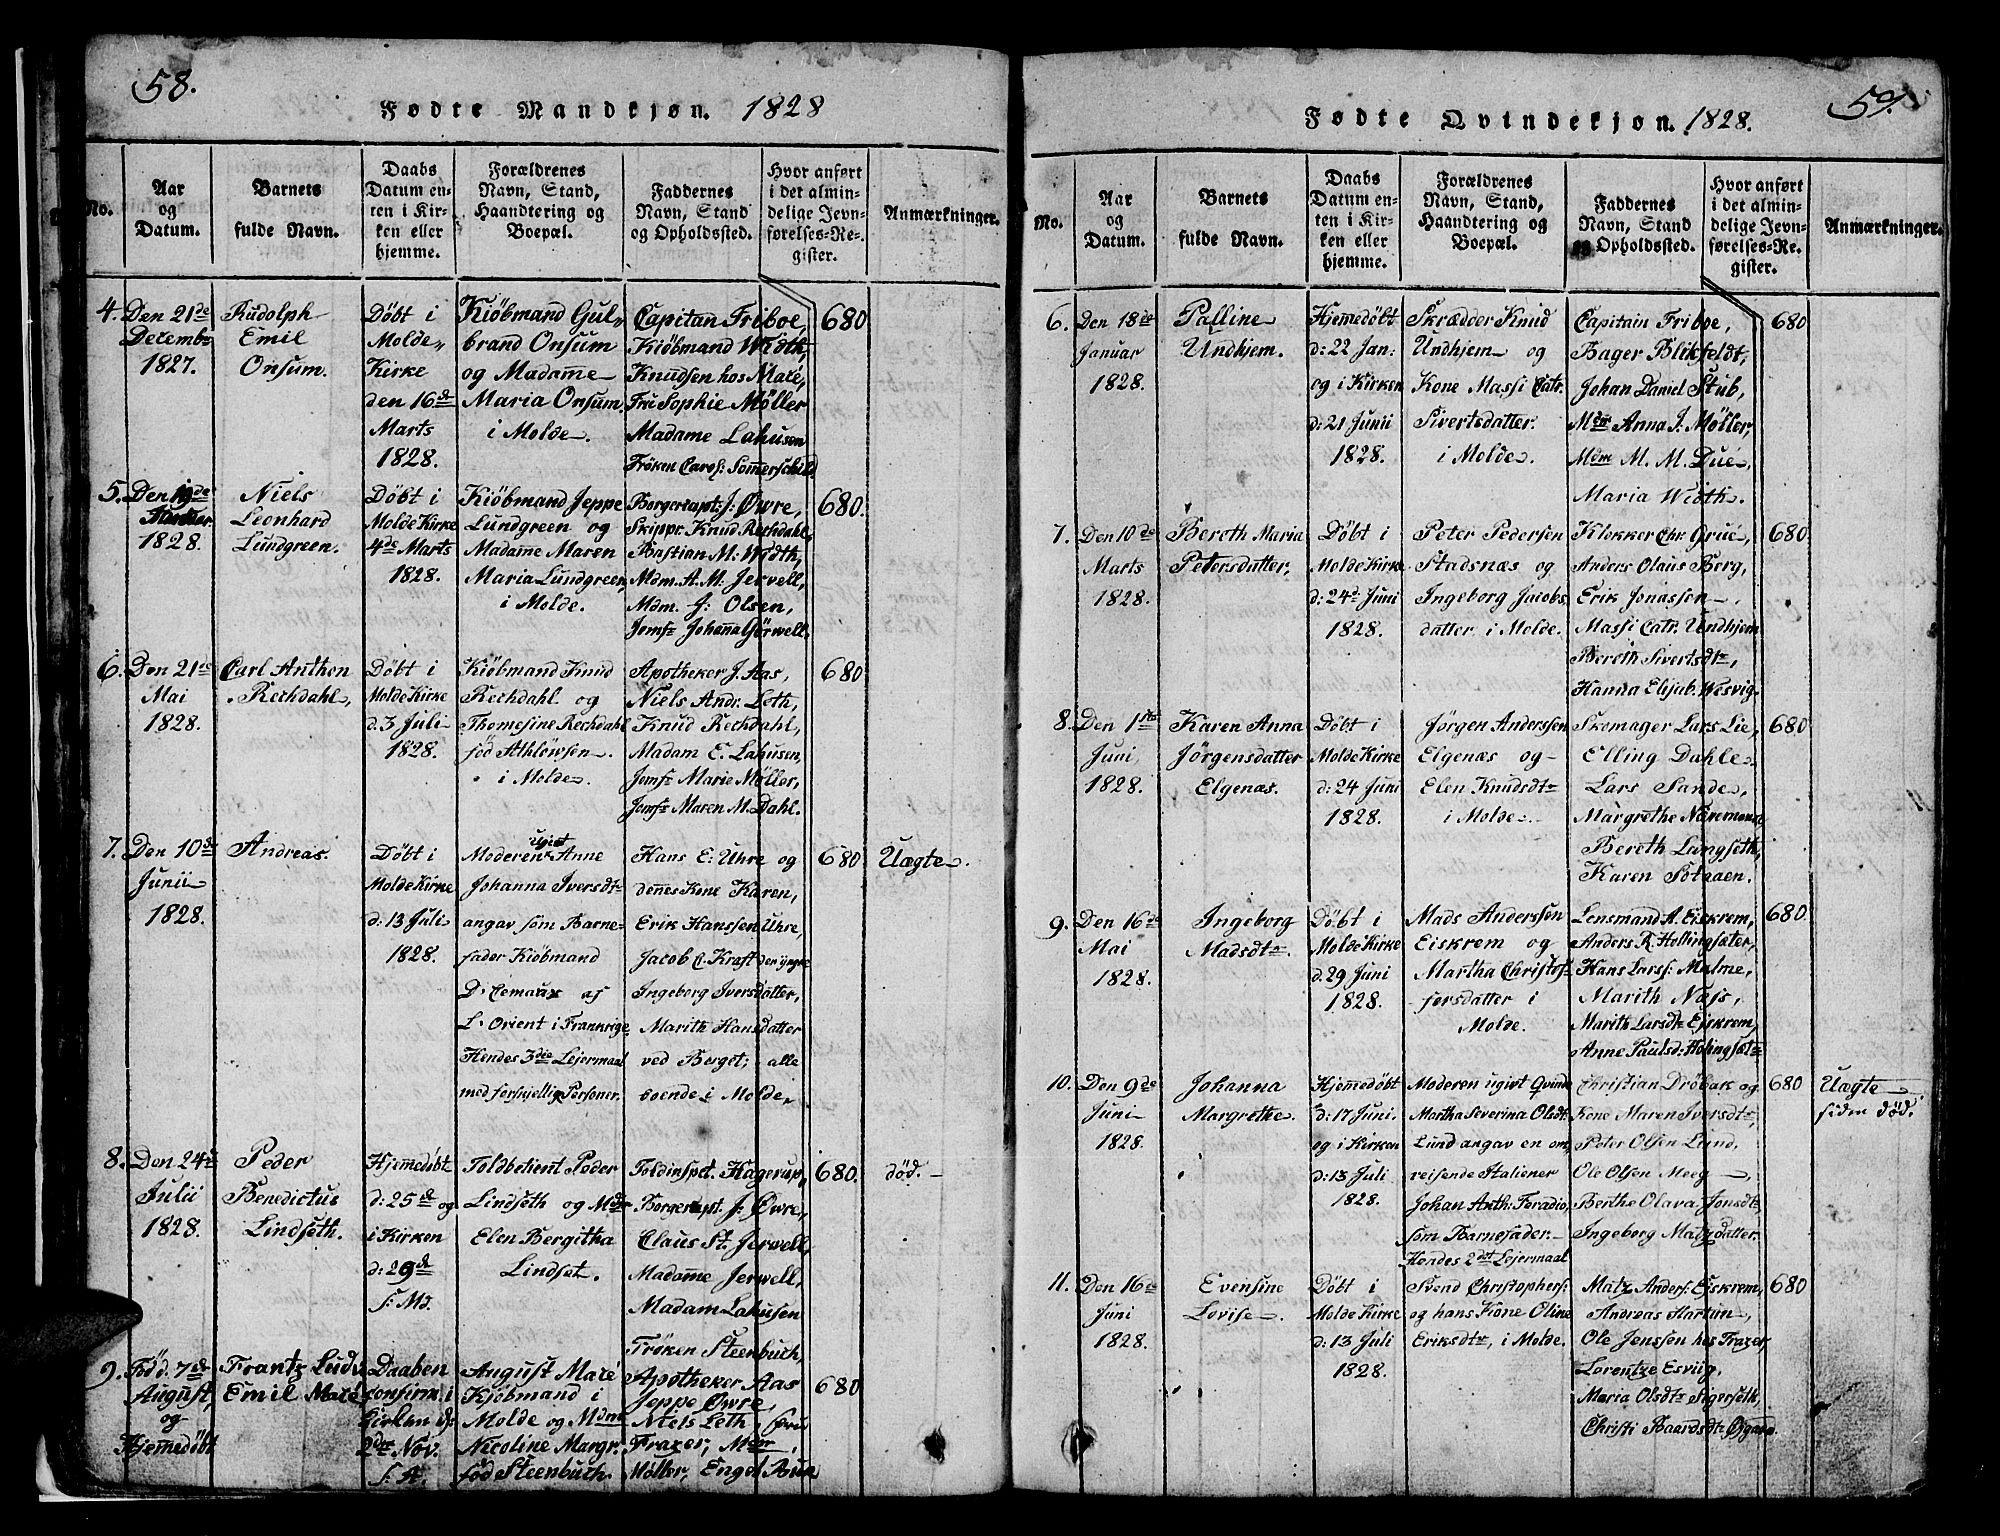 58.
Fødte Mandkjøn. 1828
No.
Aar
og
Datum.
Barnets
fulde Navn.
Daabs
Datum en-
ten i Kir-
ken eller
hjemme.
Forældrenes
Navn, Stand,
Haandtering og
Boepæl.
Faddernes
Navn, Stand
og Opholdssted.
Hvor anført
i det almin-
delige Jevn-
førelses-Re-
gister.
Anmærkninger.
4.
Den 21de
Decembr
1827.
Rudolph
Emil
Onsum.
Døbt i
Molde
Kirke
den 16de
Marts
1828.
Kiöbmand Gul-
brand Onsum
og Madame
Maria Onsum
i Molde.
Capitan Friboe,
Kiöbmand Width,
Knudsen hos Maré,
Fru Sophie Møller
Madame Lahusen
Frøken Carol: Sommerschild
680
5.
Den 19de
1828.
Niels
Leonhard
Lundgreen.
Døbt i
Molde Kirke
4de Marts
1828.
Kiöbmand Jeppe
Lundgreen og
Madame Maren
Maria Lundgreen,
i Molde.
Borgercapt: J: Øwre,
Skippr. Knud Rechdahl,
Bastian M: Width,
Mdm. A. M. Jervell,
Mdm. J: Olsen,
Jomfr Johanna Gørwell.
680.
6.
Den 21de
Mai
1828.
Carl Anthon
Rechdahl,
Døbt i
Molde Kirke
d. 3 Juli
1828.
Kiöbmand Knud
Rechdahl og
Thomesine Rechdahl
fød Athlowsen.
i Molde.
Apotheker J. Aas,
Niels Andr. Leth,
Knud Rechdahl,
Madam E. Lahusen,
Jomfr Marie Møller,
Jomfr Maren M. Dahl.
680
7.
Den 10de
Junii
1828.
Andreas.
Døbt i
Molde Kirke
d: 13 Juli
1828.
ugivt
Moderen Anne
Johanna Iversdtr
angav som Barne-
fader Kiöbmand
D. Cemaux af
L'Orient i Frankrige.
Hendes 3die Lejermaal
med forskjellig Personer.
Hans E: Uhre og
dennes Kone Karen,
Erik Hanssen Uhre,
Jacob C. Kraft den yngre
Ingeborg Iversdatter,
Marith Hansdatter
ved Berget, alle
boende i Molde.
680
Uægte.
8.
Den 24de
Julii
1828.
Peder
Benedictus
Lindseth.
Hjemedøbt
d: 25de og
i Kirken
d: 29de
s: Md.
Toldbetient Peder
Lindseth og Mdm
Elen Bergitha
Lindset.
Toldinspet. Hagerup,
Borgercapt. J: Øwre,
Claus St. Jerwell,
Madame Jerwell,
Madam Lahusen
Frøken Steenbuch,
680.
død.
9.
Fød d. 7de
August,
og
Hjemedøbt
Frantz Ludv.
Emil Maré
Daaben
confirm. i
Kirken d:
2den Nov.
s: A.
August Maré
Kjöbmand i
Molde og Mdme
Nicoline Margr.
fød Steenbuch.
Apotheker Aas
Jeppe Øwre
Niels Leth, Fru
Frazer, Mdm
Møller, Engel
680
59.
Fødte Qvindekjøn. 1828.
No.
Aar
og
Datum.
Barnets
fulde Navn.
Daabs
Datum en-
ten i Kir-
ken eller
hjemme.
Forældrenes
Navn, Stand,
Haandtering og
Boepæl.
Faddernes
Navn, Stand
og Opholdssted.
Hvor anført
i det almin-
delige Jevn-
førelses-Re-
gister.
Anmærkninger.
6.
Den 18de
Januar
1828.
Palline
Undhjem.
Hjemedøbt
d: 22 Jan:
og i Kirken
d: 21 Junii
1828.
Skrædder Knud
Undhjem og
Kone Massi Catr.
Sivertsdatter.
i Molde.
Capitain Friboe,
Bager Blikfeldt,
Johan Daniel Stub,
Mdm Anna J. Møller,
Mdm M. M. Dué,
Maria Width.
680
7.
Den 10de
Marts
1828.
Bereth Maria
Petersdatter,
Døbt i
Molde Kirke
d: 24de Juni
1828.
Peter Pedersen
Stadsnæs og
Ingeborg Jacobs-
datter, i Molde.
Klokker Chr. Grué,
Anders Olaus Berg,
Erik Jonassen,
Massi Catr. Undhjem
Bereth Sivertsdtr,
Hanna Elisab. Wesvig.
680
8.
Den 1ste
Juni
1828.
Karen Anna
Jörgensdatter
Elgenæs.
Døbt i
Molde Kirke
d: 24 Juni
1828.
Jørgen Anderssen
Elgenæs og
Elen Knudsdtr
i Molde.
Skomager Lars Lie,
Elling Dahle
Lars Sande,
Margrethe
Bereth Langseth,
Karen
680
9.
Den 16de
Mai
1828.
Ingeborg
Madsdtr.
Døbt i
Molde Kirke
d. 29 Juni
1828.
Mads Anderssen
Eiskrem og
Martha Christof-
fersdatter i
Molde.
Lensmand A. Eiskrem,
Anders R Hollingsæter,
Hans Larss: Malme,
Marith Næss,
Marith Larsdtr Ejskrem,
Anne Paulsd: Holingsætr
680.
10.
Den 9de
Juni
1828.
Johanna
Margrethe.
Hjemedøbt
d: 17 Juni.
og i Kirken
d: 13 Juli
1828.
Moderen ugivt Qvinde
Martha Severina Olsdtr.
Lund angav en om
reisende Italiener
Johan Anth: Feradio,
som Barnefader.
Hendes 2det Lejermaal
Christian Dröbak og
Kone Maren Iversdtr,
Peter Olsen Lund,
Ole Olsen Meeg
Berthe Olava Jonsdtr,
Ingeborg Matzdatter.
680
Uægte
siden død.
11.
Den 16de
Juni
1828.
Evensine
Lovise.
Døbt i
Molde Kirke
d: 13 Juli
1828.
Svend Christophers:
og hans Kone Oline
Eriksdtr, i Molde.
Matz Anders: Eiskrem,
Andreas Hartun,
Ole Jenssen hos Frazer,
Lorentze Esviig,
Maria Olsdtr Sigerseth,
Christi Baardsdtr
680